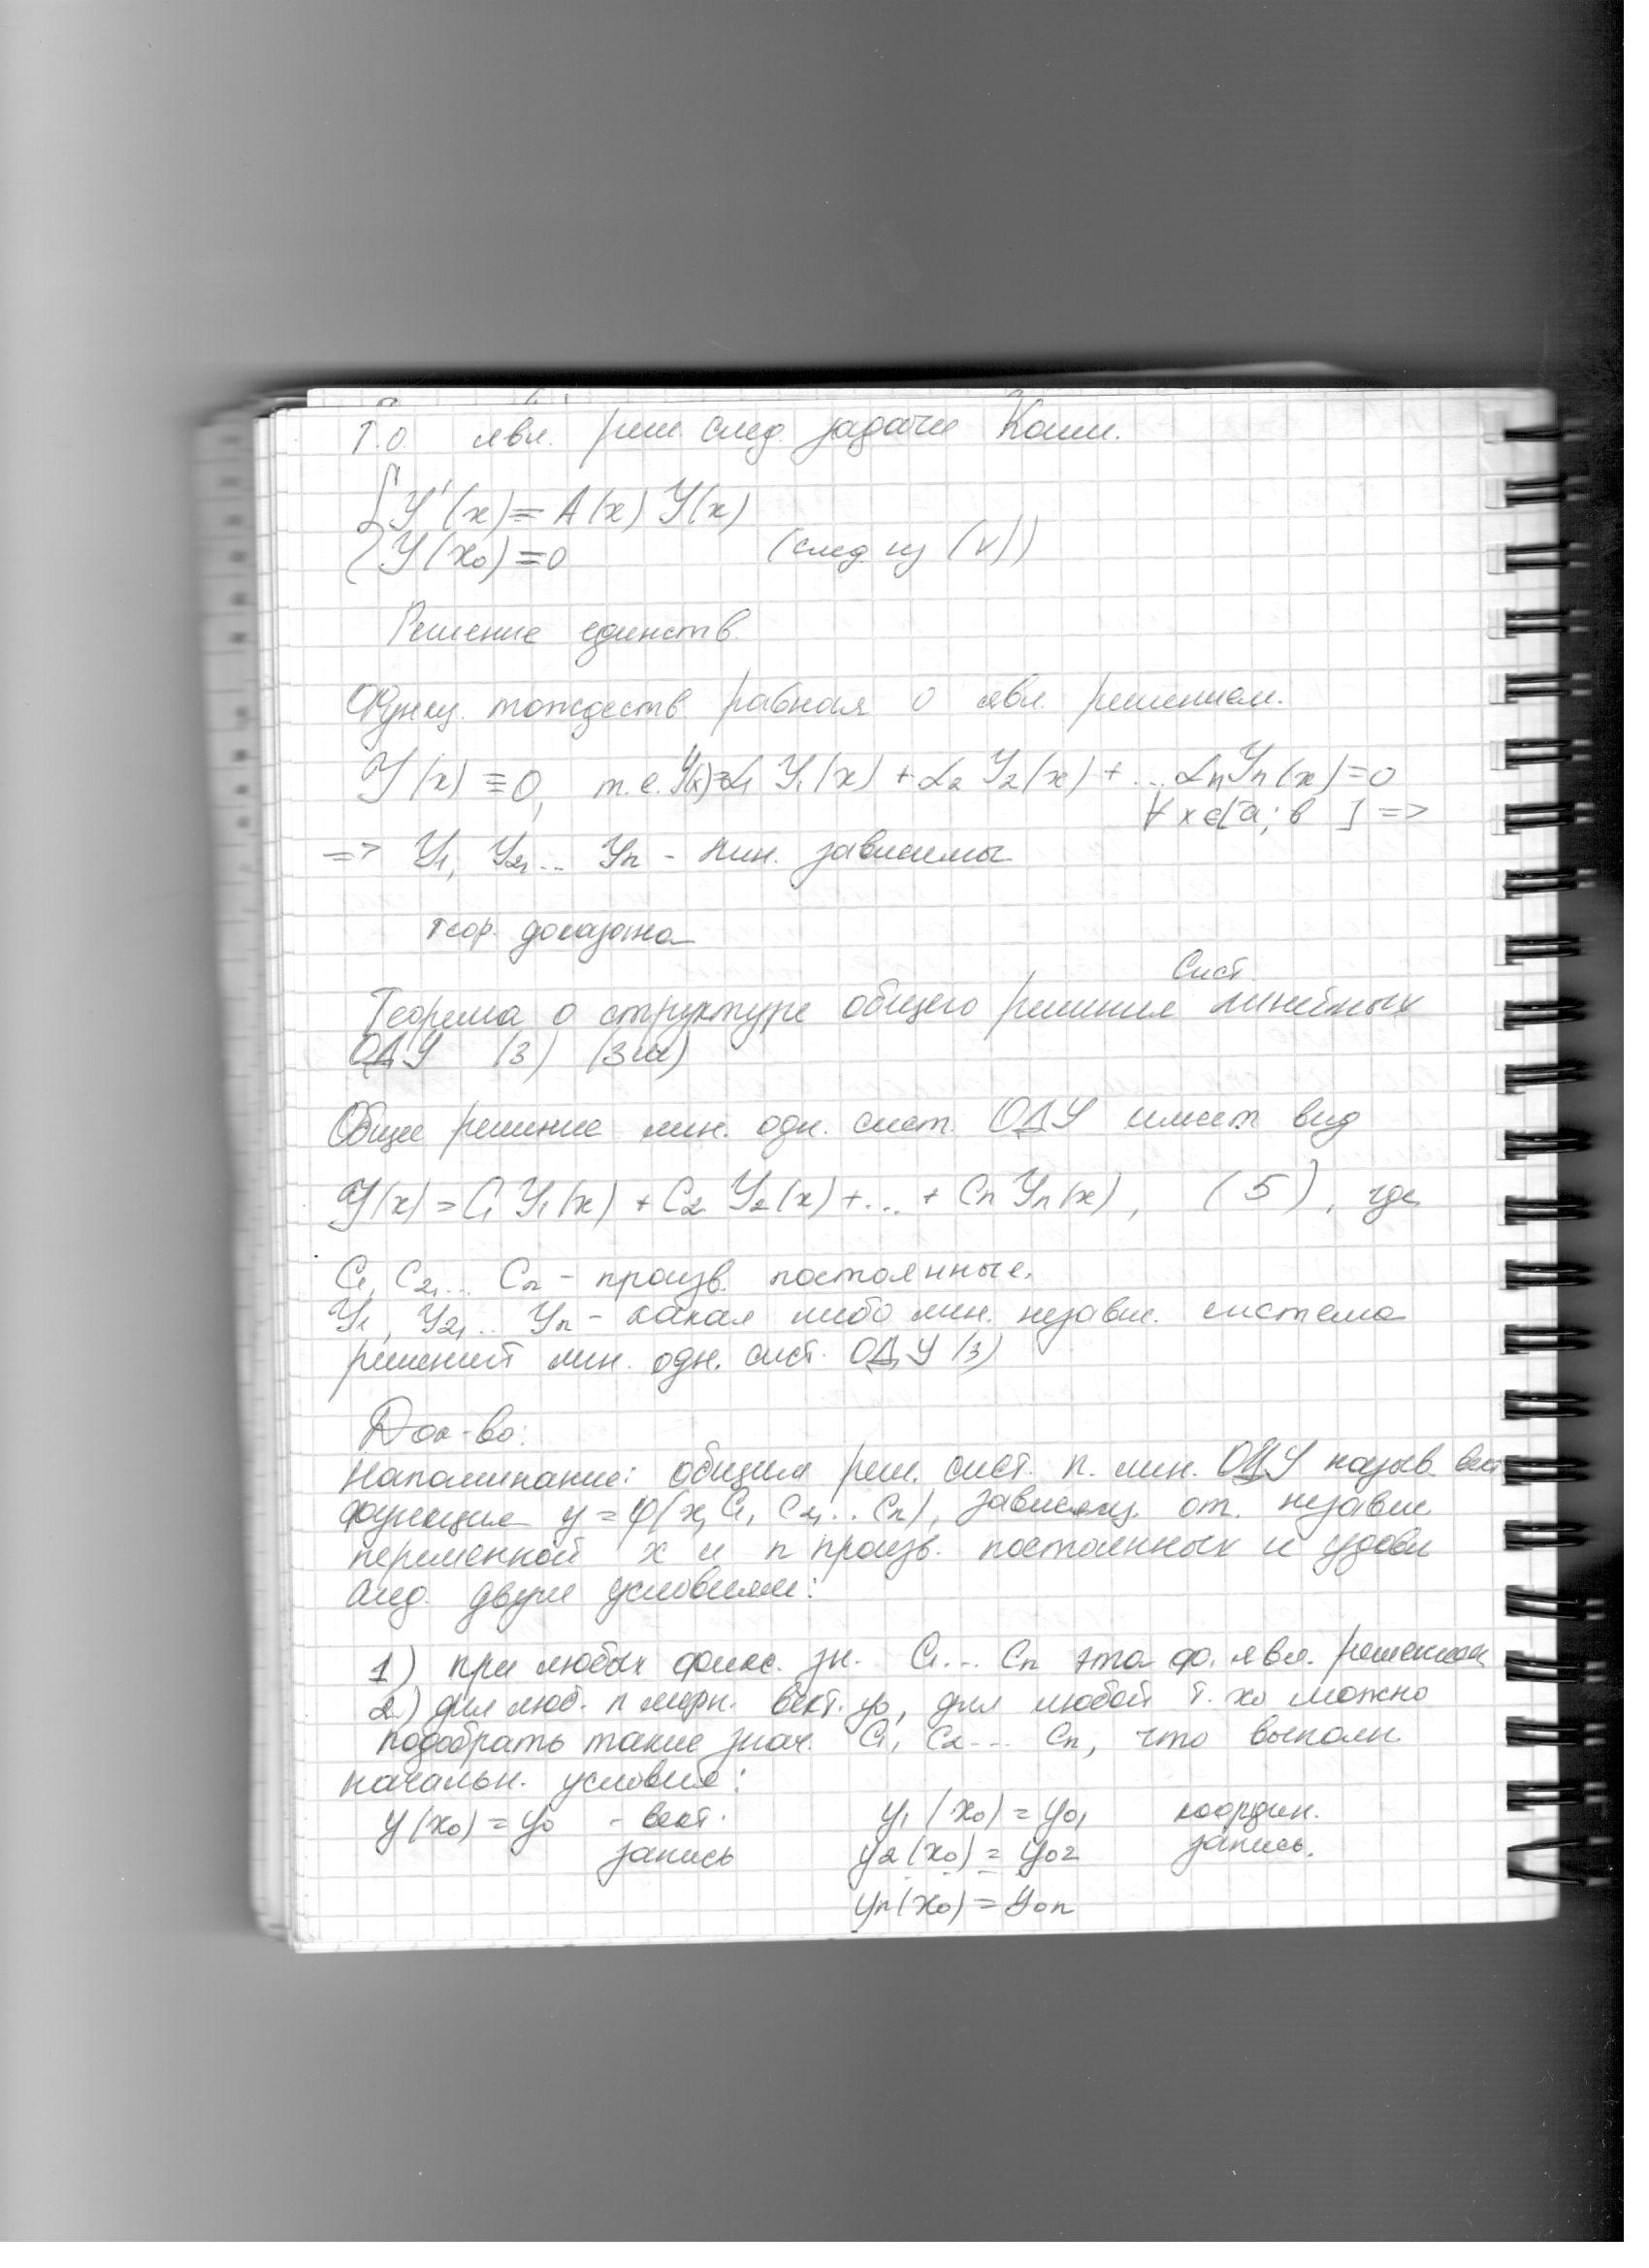 Т.о. явл. реш. след. задачи Коши.
{ Y'(x) = A(x) Y(x)
{ Y(x₀) = 0 (след из (v))
Решение единств.
Функц. тождеств. равная 0 явл. решением.
Y(x) ≡ 0, т.е. Y(x)=α₁ Y₁(x) + α₂ Y₂(x) + ... αₙYₙ(x) = 0
∀ x ∈ [a; b ] =>
=> Y₁, Y₂, ... Yₙ - лин. зависимы
теор. доказана
Сист.
Теорема о структуре общего решения линейных
ОДУ (3)
Общее решение лин. одн. сист. ОДУ имеет вид
Y(x) = C₁ Y₁(x) + C₂ Y₂(x) + ... + Cₙ Yₙ(x), (5), где
C₁, C₂, ... Cₙ - произв. постоянные.
Y₁, Y₂, .. Yₙ - какая либо лин. независ. система
решений лин. одн. сист. ОДУ (3)
Док-во:
Напоминание: общим реш. сист. n. лин. ОДУ назыв. вект
функция y = φ(x, C₁, C₂, .. Cₙ), зависящ. от. независ
переменной x и n произв. постоянных и удовл
след. двум условиям:
1) при любых фикс. зн. C₁ ... Cₙ эта ф. явл. решением
2) для люб. n мерн. вект. y₀, для любой т. x₀ можно
подобрать такие знач. C₁, C₂ ... Cₙ, что выполн.
начальн. условие:
y(x₀) = y₀ - вект. y₁(x₀) = y₀₁ координ.
запись y₂(x₀) = y₀₂ запись.
yₙ(x₀) = y₀ₙ